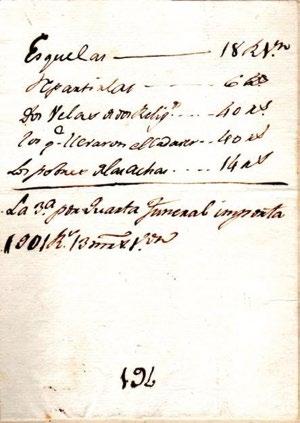 Esquelas — 18 R. Vn
Repartirlas — 6
Dos Velas a dos Relig.s — 40 rs.
los q.e llevaron el cadaver — 40 rs.
Los pobres de las achas — 14 rs.
La 3.a por Quarta Funeral importa
1901 R.s 13 mrs. vn
194